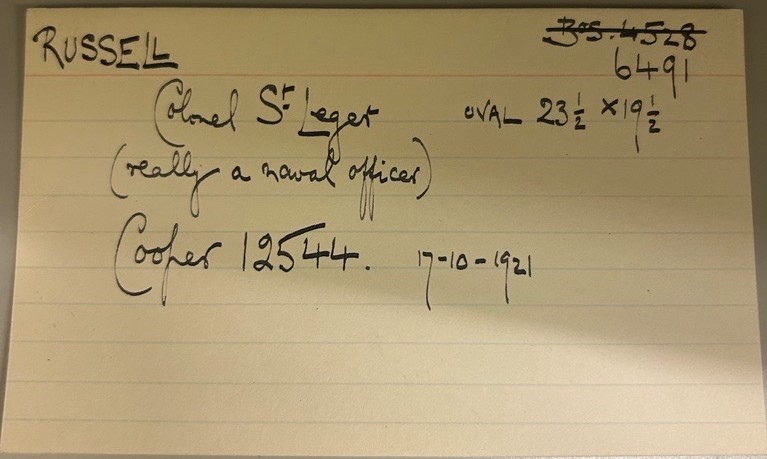 RUSSELL
Bos. 4528
6491
Colonel St Leger OVAL 23½ × 19½
(really a naval officer)
Cooper 12544. 17-10-1921